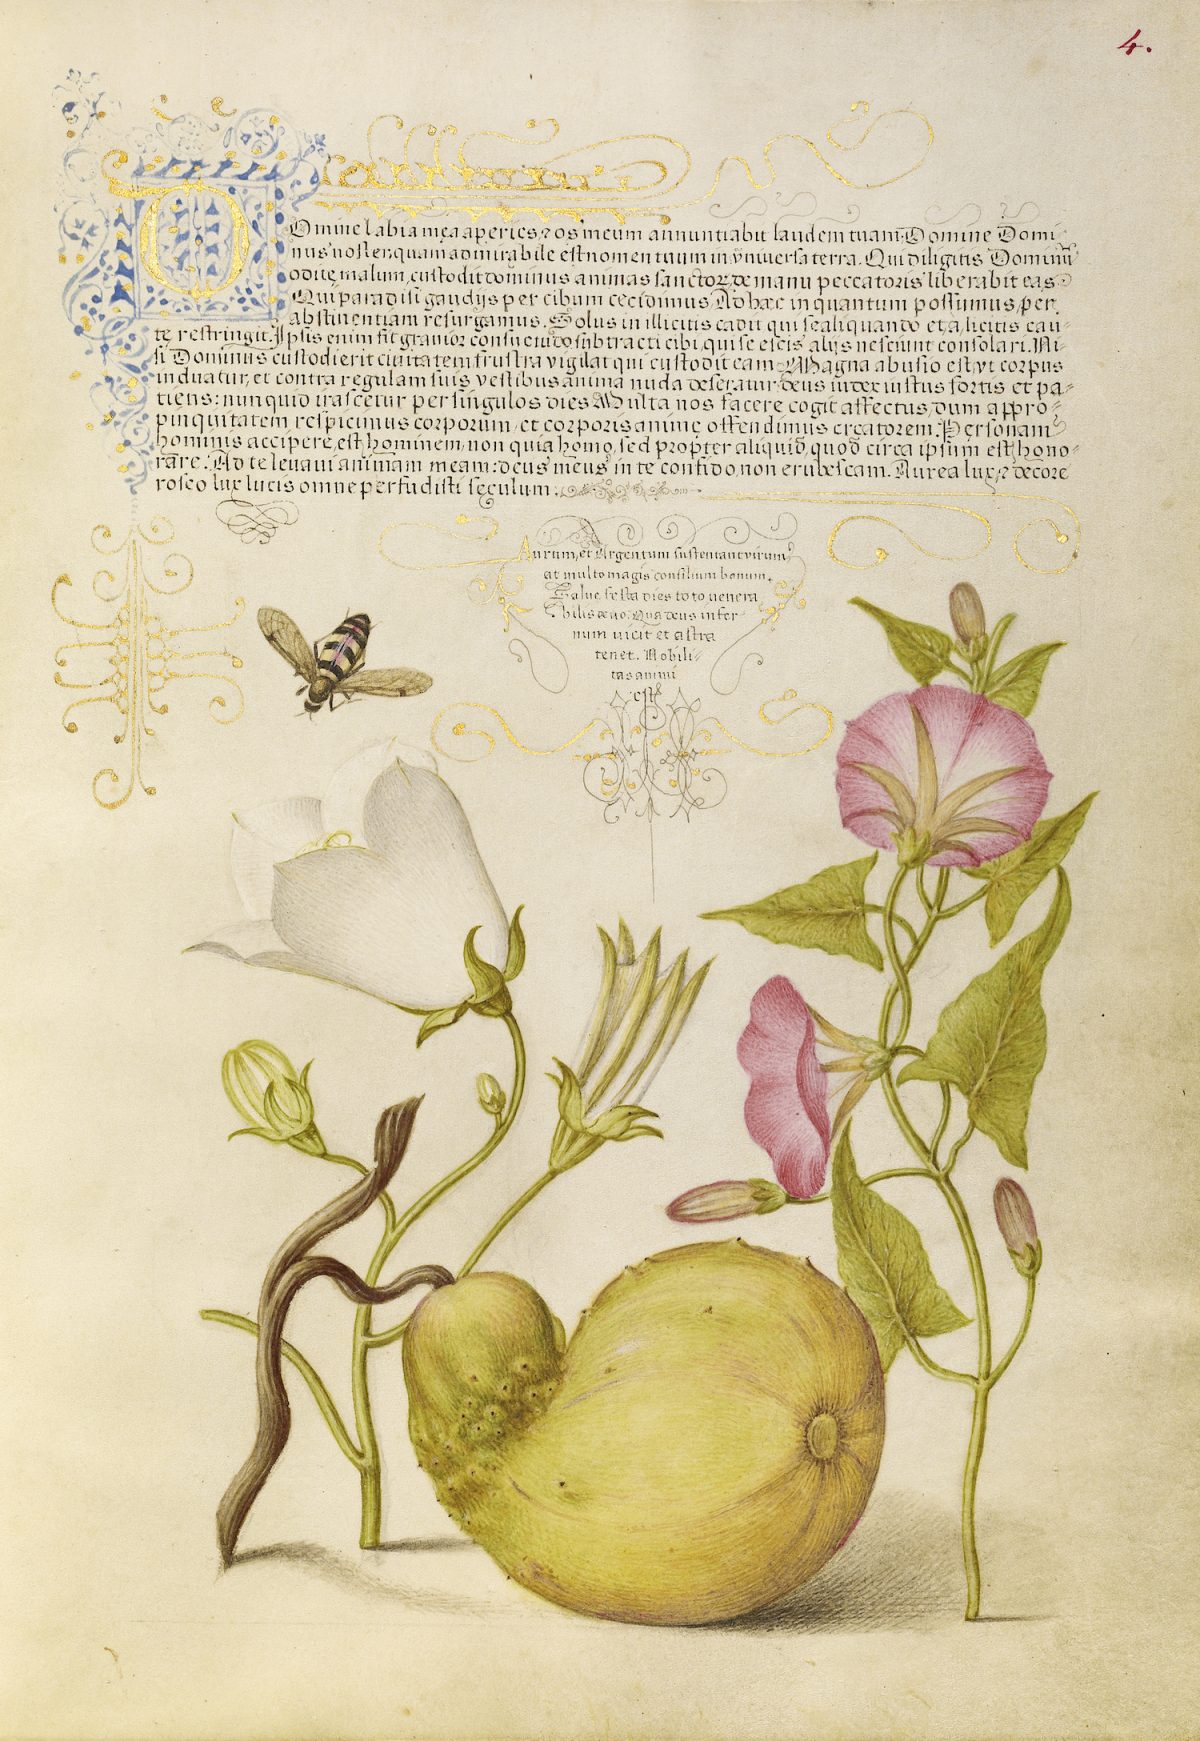 4.
Omine labia mea aperies, & os meum annuntiabit laudem tuam. Domine Domi-
nus noster quam admirabile est nomen tuum in vniuersa terra. Qui diligitis Dominũ
odite malum, custodit dominus animas sanctorũ, de manu peccatoris liberabit eas
Qui paradisi gaudijs per cibum cecidimus. Ad hæc in quantum possumus, per
abstinentiam resurgamus. Solus in illicitis cadit qui se aliquando et a licitis cau-
tę restringit. Ipsis enim fit gravior consuetudo subtracti cibi, qui se escis alijs nesciunt consolari. Ni-
si Dominus custodierit ciuitatem frustra vigilat qui custodit eam. Magna abusio est vt corpus
induatur, et contra regulam suis vestibus anima nuda deseratur. Deus iudex iustus fortis et pa-
tiens: nunquid irascetur per singulos dies. Multa nos facere cogit affectus, dum appro-
pinquitatem respicimus corporum, et corporis animę offendimus creatorem. Personam
hominis accipere, est hominem, non quia homo, sed propter aliquid, quod circa ipsum est, hono-
rare. Ad te leuaui animam meam: deus meus in te confido, non erubescam. Aurea lux, & decore
roseo lux lucis omne perfudisti sęculum.
Aurum, et Argentum sustentant virum,
at multo magis consilium bonum.
Salue festa dies toto uenera
bilis æuo. Qua deus infer-
num uicit et astra
tenet. Nobili-
tas animi
est